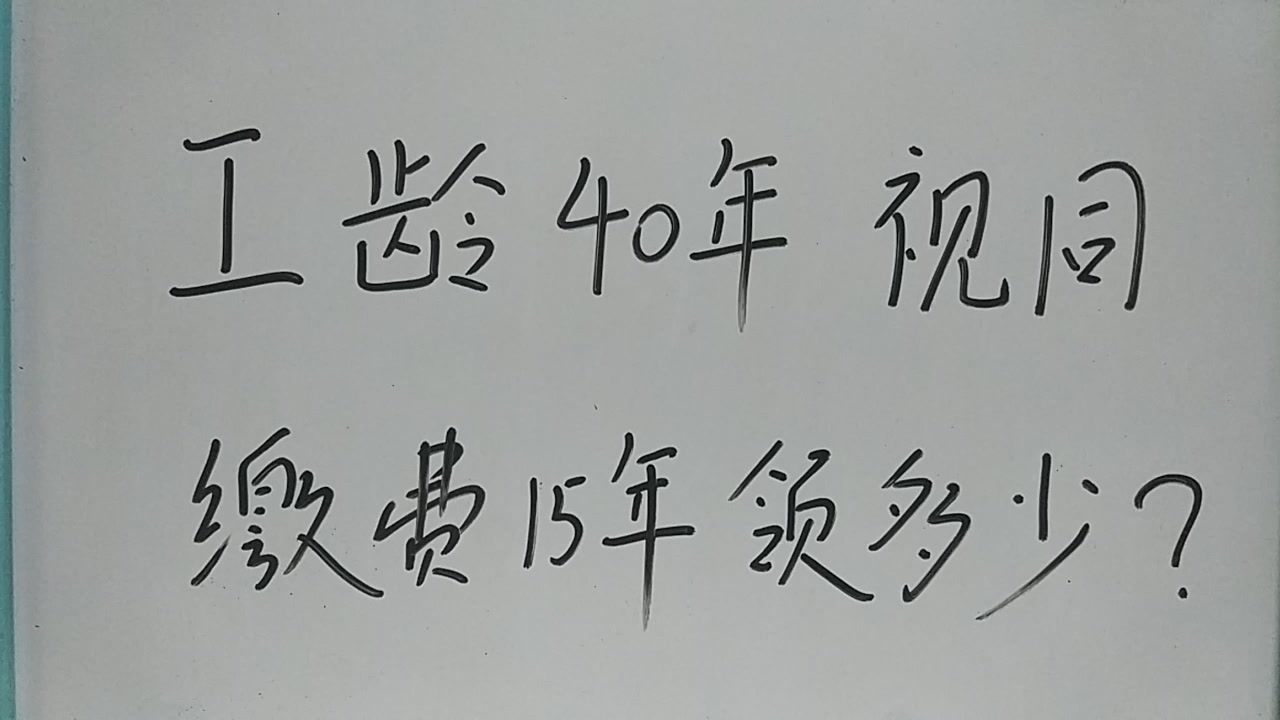 工龄40年 视同
缴费15年领多少?